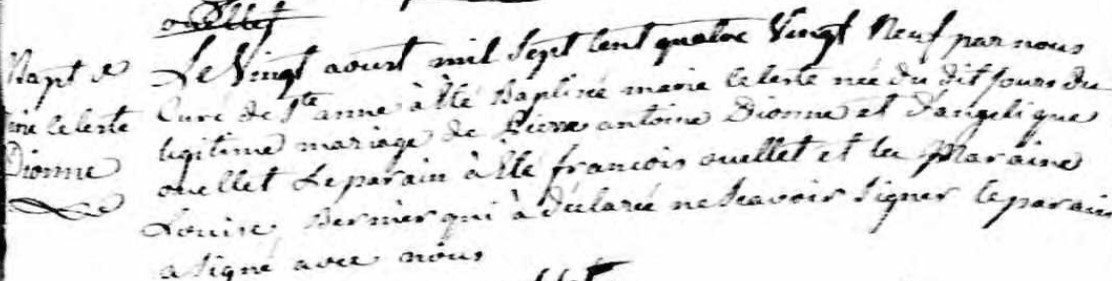 ouellet
Bapt de Le Vingt aoust mil Sept Cent quatre Vingt Neuf par nous
ie Celeste Curé de Ste anne à été Baptisée marie Celeste née du dit jour du
Dionne legitime mariage de Pierre antoine Dionne et d'angelique
ouellet Le parain à été francois ouellet et la Maraine
Louise Bernier qui à déclarée ne Scavoir Signer le parain
a Signé avec nous